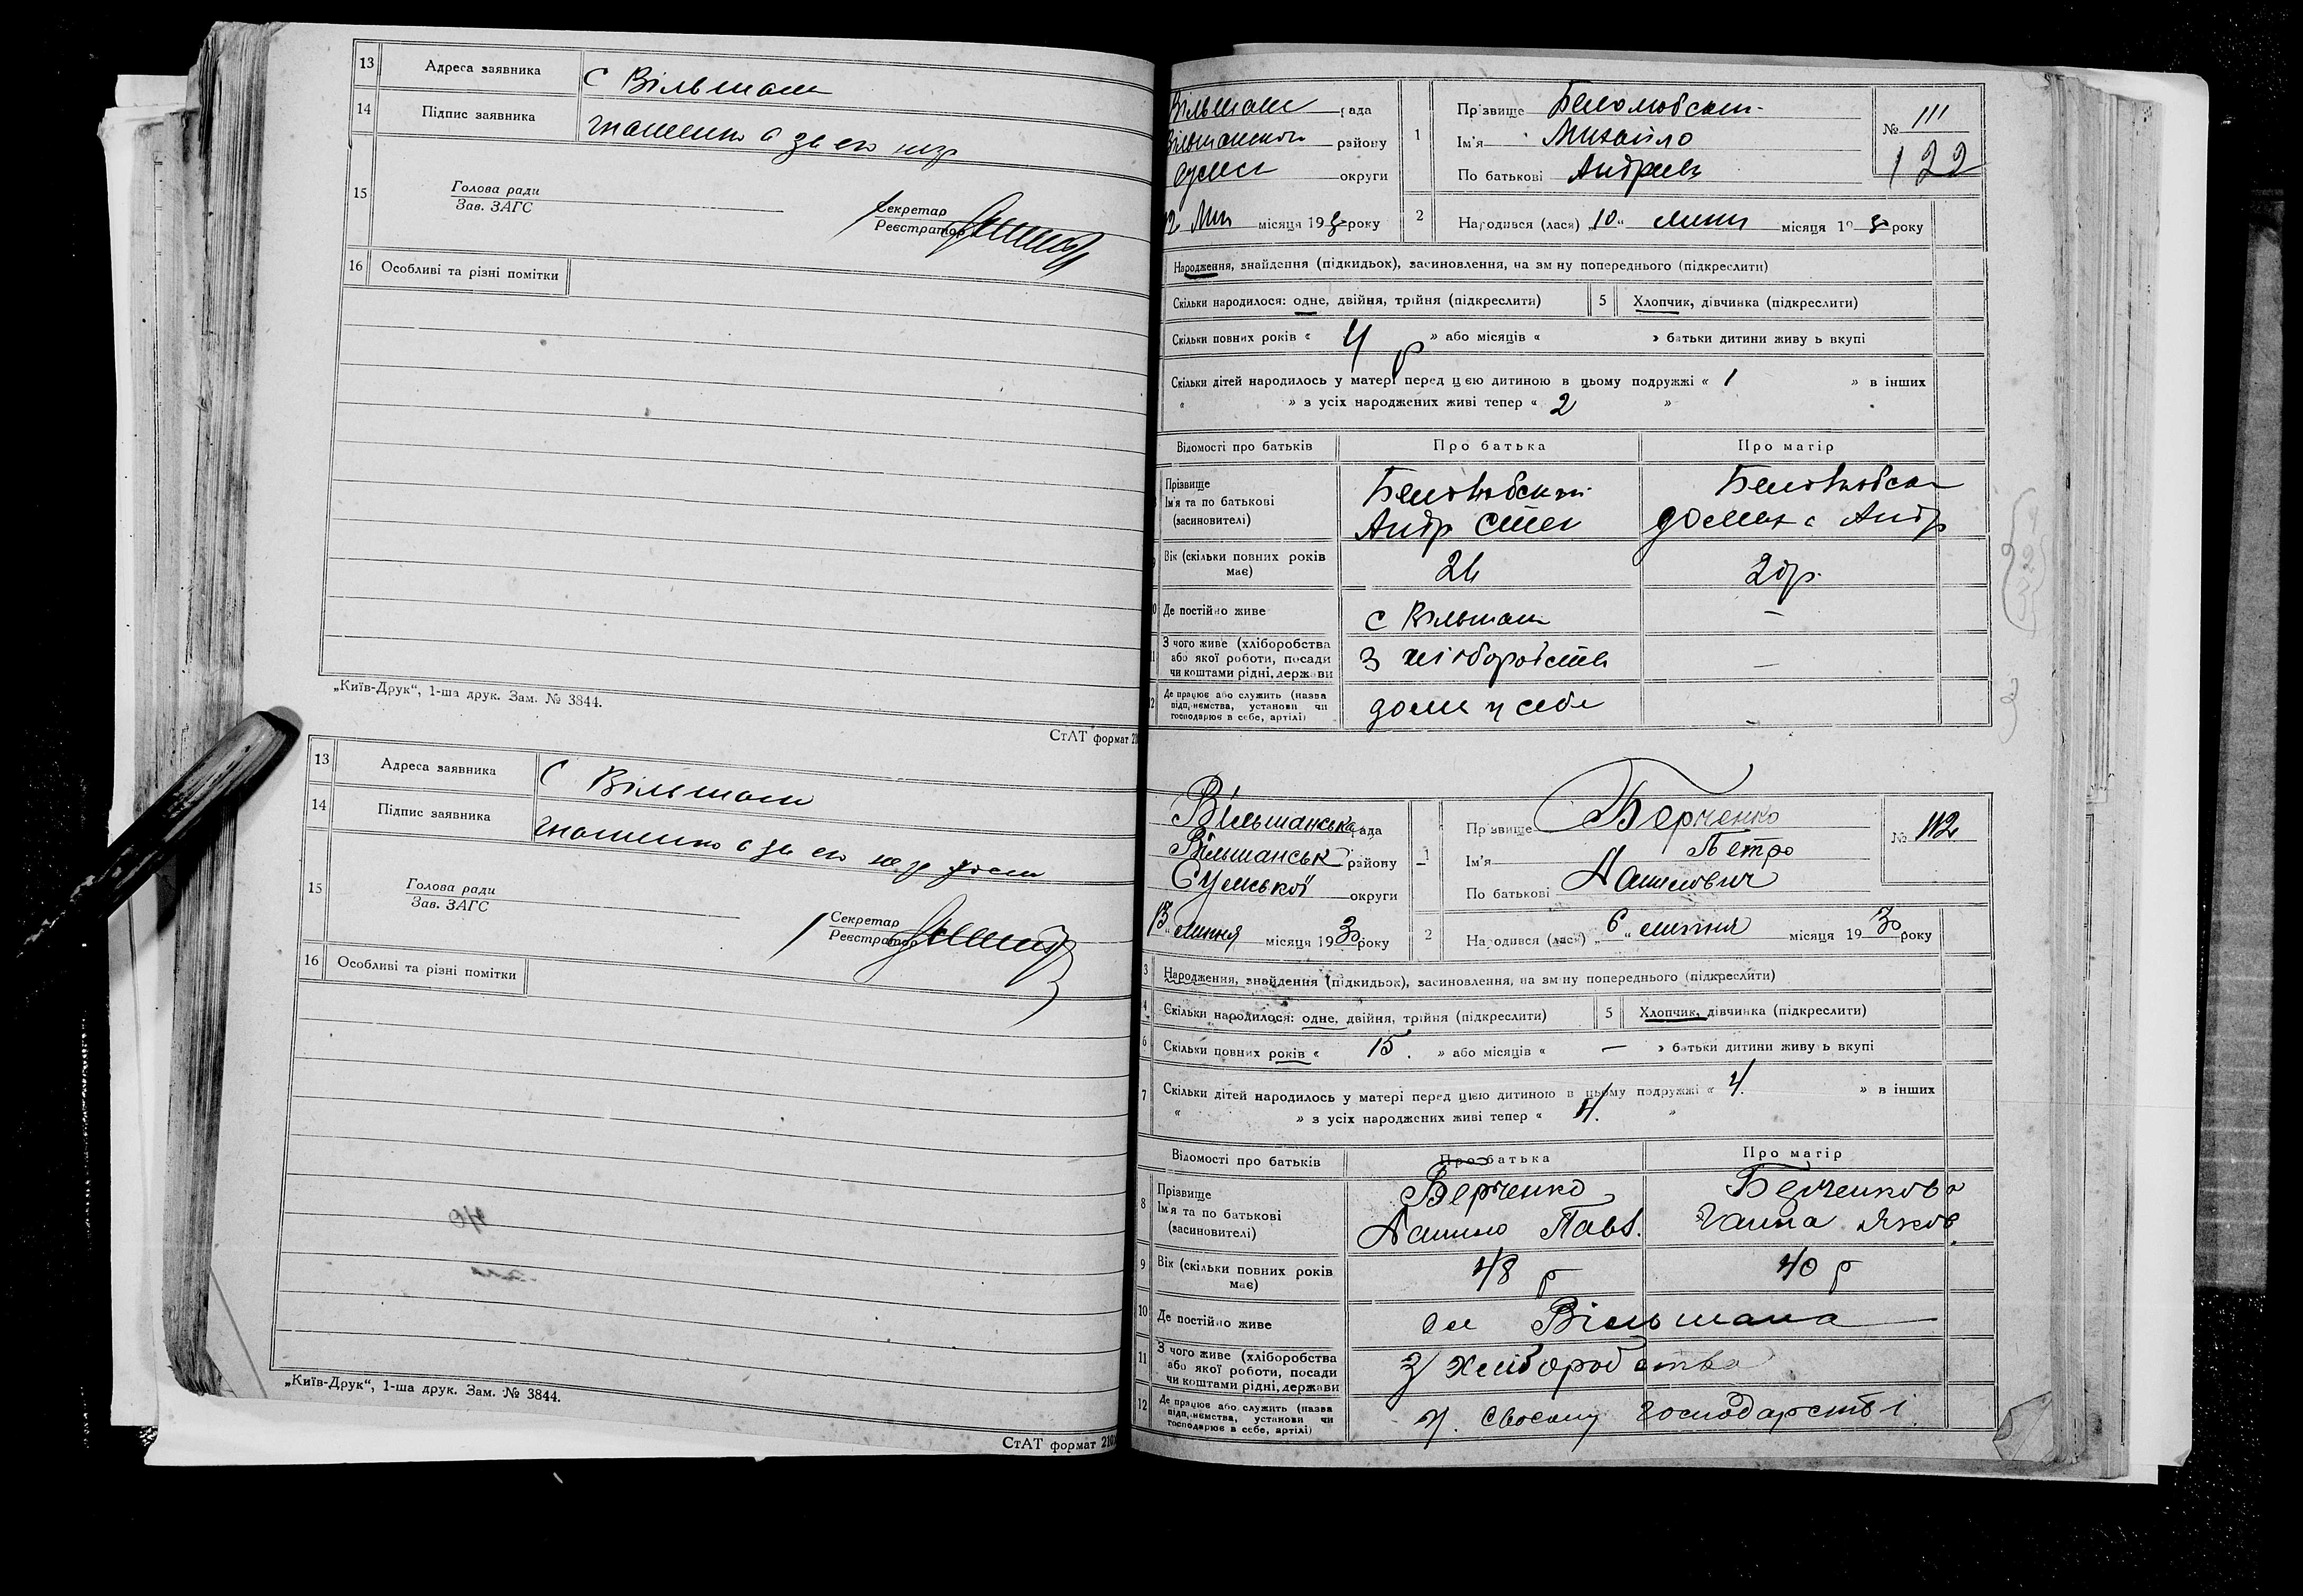 13 Адреса заявника С Вільшани
14 Підпис заявника
15 Голова ради
Зав. ЗАГС
Секретар
Реєстратор
16 Особливі та різні помітки
„Київ-Друк“, 1-ша друк. Зам. № 3844.
СтАТ формат
13 Адреса заявника С Вільшани
14 Підпис заявника
15 Голова ради
Зав. ЗАГС
Секретар
Реєстратор
16 Особливі та різні помітки
„Київ-Друк“, 1-ша друк. Зам. № 3844.
СтАТ формат
рада
району
округи
місяця 19 року
1 Прізвище
Ім'я Михайло
По батькові Андреев
№ 111
122
2 Народився (лася) „10“ липня місяця 19 року
Народження, знайдення (підкидьок), засиновлення, на зміну попереднього (підкреслити)
Скільки народилося: одне, двійня, трійня (підкреслити) 5 Хлопчик, дівчинка (підкреслити)
Скільки повних років « 4 р » або місяців « » батьки дитини живуть вкупі
Скільки дітей народилось у матері перед цією дитиною в цьому подружжі « 1 » в інших
« » з усіх народжених живі тепер « 2 »
Відомості про батьків Про батька Про матір
Прізвище
Ім'я та по батькові
(засиновителі)
Андр Степ
Андр
Вік (скільки повних років
має)
Де постійно живе с Вільшани —
З чого живе (хліборобства
або якої роботи, посади
чи коштами рідні, держави
З хліборобства —
Де працює або служить (назва
підприємства, установи чи
господарює в себе, артілі)
дома у себе —
Вільшанська рада
Вільшанськ району
Сумської округи
13 „липня місяця 1930 року
1 Прізвище Берченко
Ім'я Петро
По батькові Данилович
№ 112
2 Народився (лася) „6“ липня місяця 1930 року
3 Народження, знайдення (підкидьок), засиновлення, на зміну попереднього (підкреслити)
4 Скільки народилося: одне, двійня, трійня (підкреслити) 5 Хлопчик, дівчинка (підкреслити)
6 Скільки повних років « 15. » або місяців « — » батьки дитини живуть вкупі
7 Скільки дітей народилось у матері перед цією дитиною в цьому подружжі « 4. » в інших
« » з усіх народжених живі тепер « 4. »
Відомості про батьків Про батька Про матір
8 Прізвище
Ім'я та по батькові
(засиновителі)
Берченко Берченкова
Данило Павл. Ганна Яков.
9 Вік (скільки повних років
має)
48 р 40 р
10 Де постійно живе Вільшана
11 З чого живе (хліборобства
або якої роботи, посади
чи коштами рідні, держави
З хліборобства
12 Де працює або служить (назва
підприємства, установи чи
господарює в себе, артілі)
у. своєму господарстві